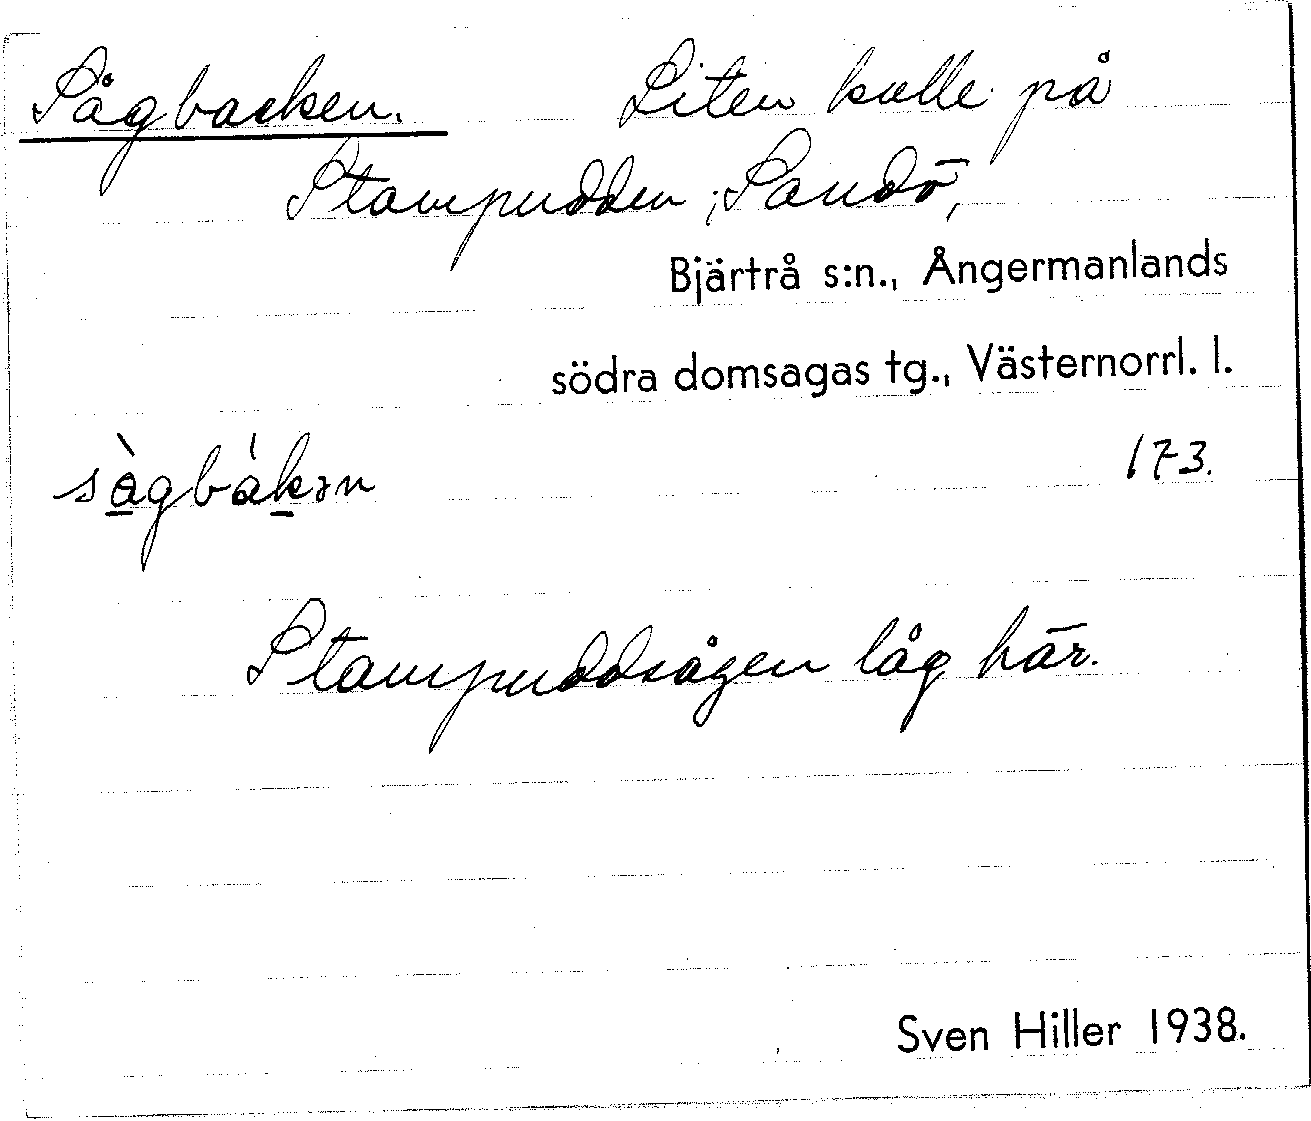 Sågbacken. Liten kulle på
Stampudden, Sandö,
Bjärtrå s:n., Ångermanlands
södra domsagas tg., Västernorrl. l.
sàgbákən 173.
Stampuddsågen låg här.
Sven Hiller 1938.